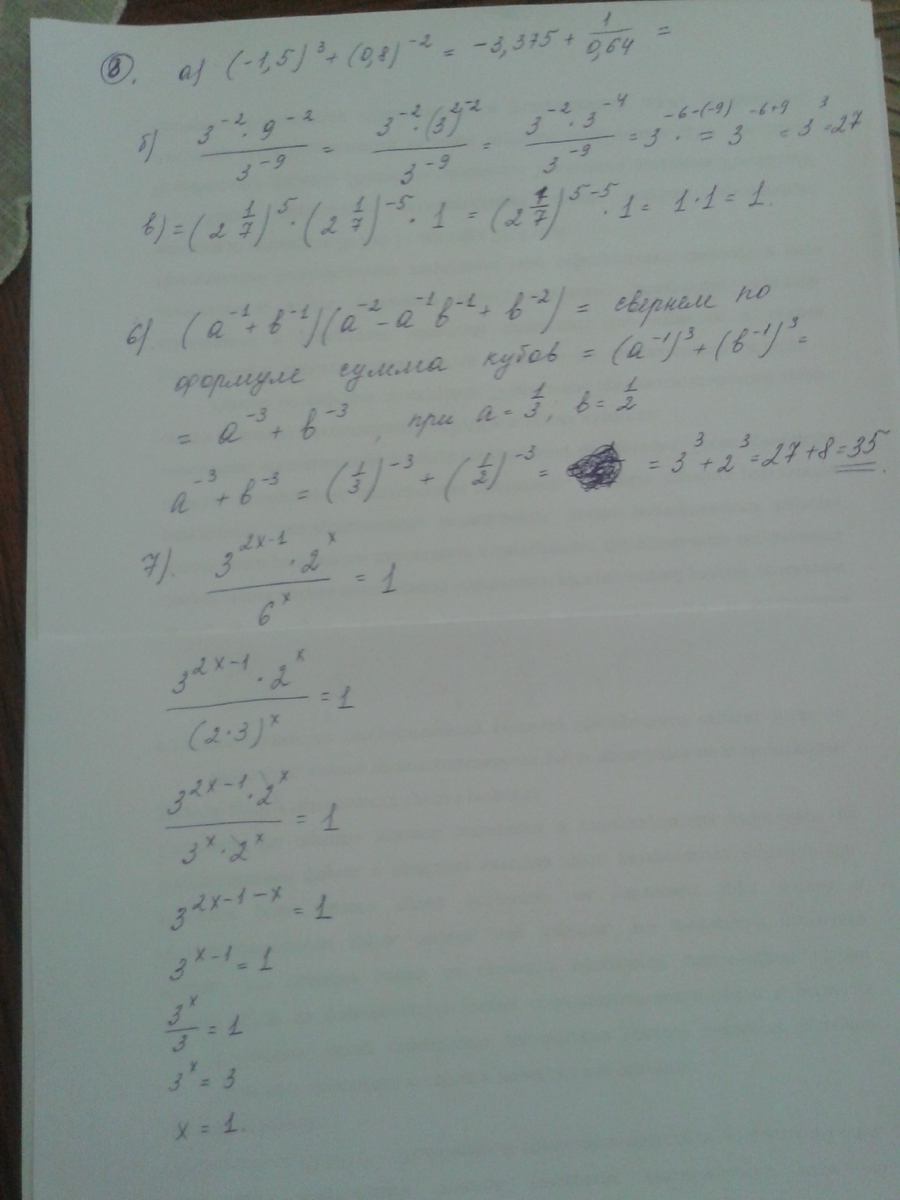 8. а) (-1,5)³ + (0,8)⁻² = -3,375 + 1/0,64 =
б) (3⁻² · 9⁻²)/3⁻⁹ = (3⁻² · (3)²⁻²)/3⁻⁹ = (3⁻² · 3⁻⁴)/3⁻⁹ = 3⁻⁶⁻⁽⁻⁹⁾ · = 3⁻⁶⁺⁹ = 3³ = 27
в) = (2 1/7)⁵ · (2 1/7)⁻⁵ · 1 = (2 1/7)⁵⁻⁵ · 1 = 1·1 = 1.
6) (a⁻¹ + b⁻¹)(a⁻² - a⁻¹b⁻¹ + b⁻²) = свернем по
формуле сумма кубов = (a⁻¹)³ + (b⁻¹)³ =
= a⁻³ + b⁻³, при a = 1/3, b = 1/2
a⁻³ + b⁻³ = (1/3)⁻³ + (1/2)⁻³ = = 3³ + 2³ = 27 + 8 = 35.
7). (3²ˣ⁻¹ · 2ˣ)/6ˣ = 1
(3²ˣ⁻¹ · 2ˣ)/(2·3)ˣ = 1
(3²ˣ⁻¹ · 2ˣ)/(3ˣ · 2ˣ) = 1
3²ˣ⁻¹⁻ˣ = 1
3ˣ⁻¹ = 1
3ˣ/3 = 1
3ˣ = 3
x = 1.